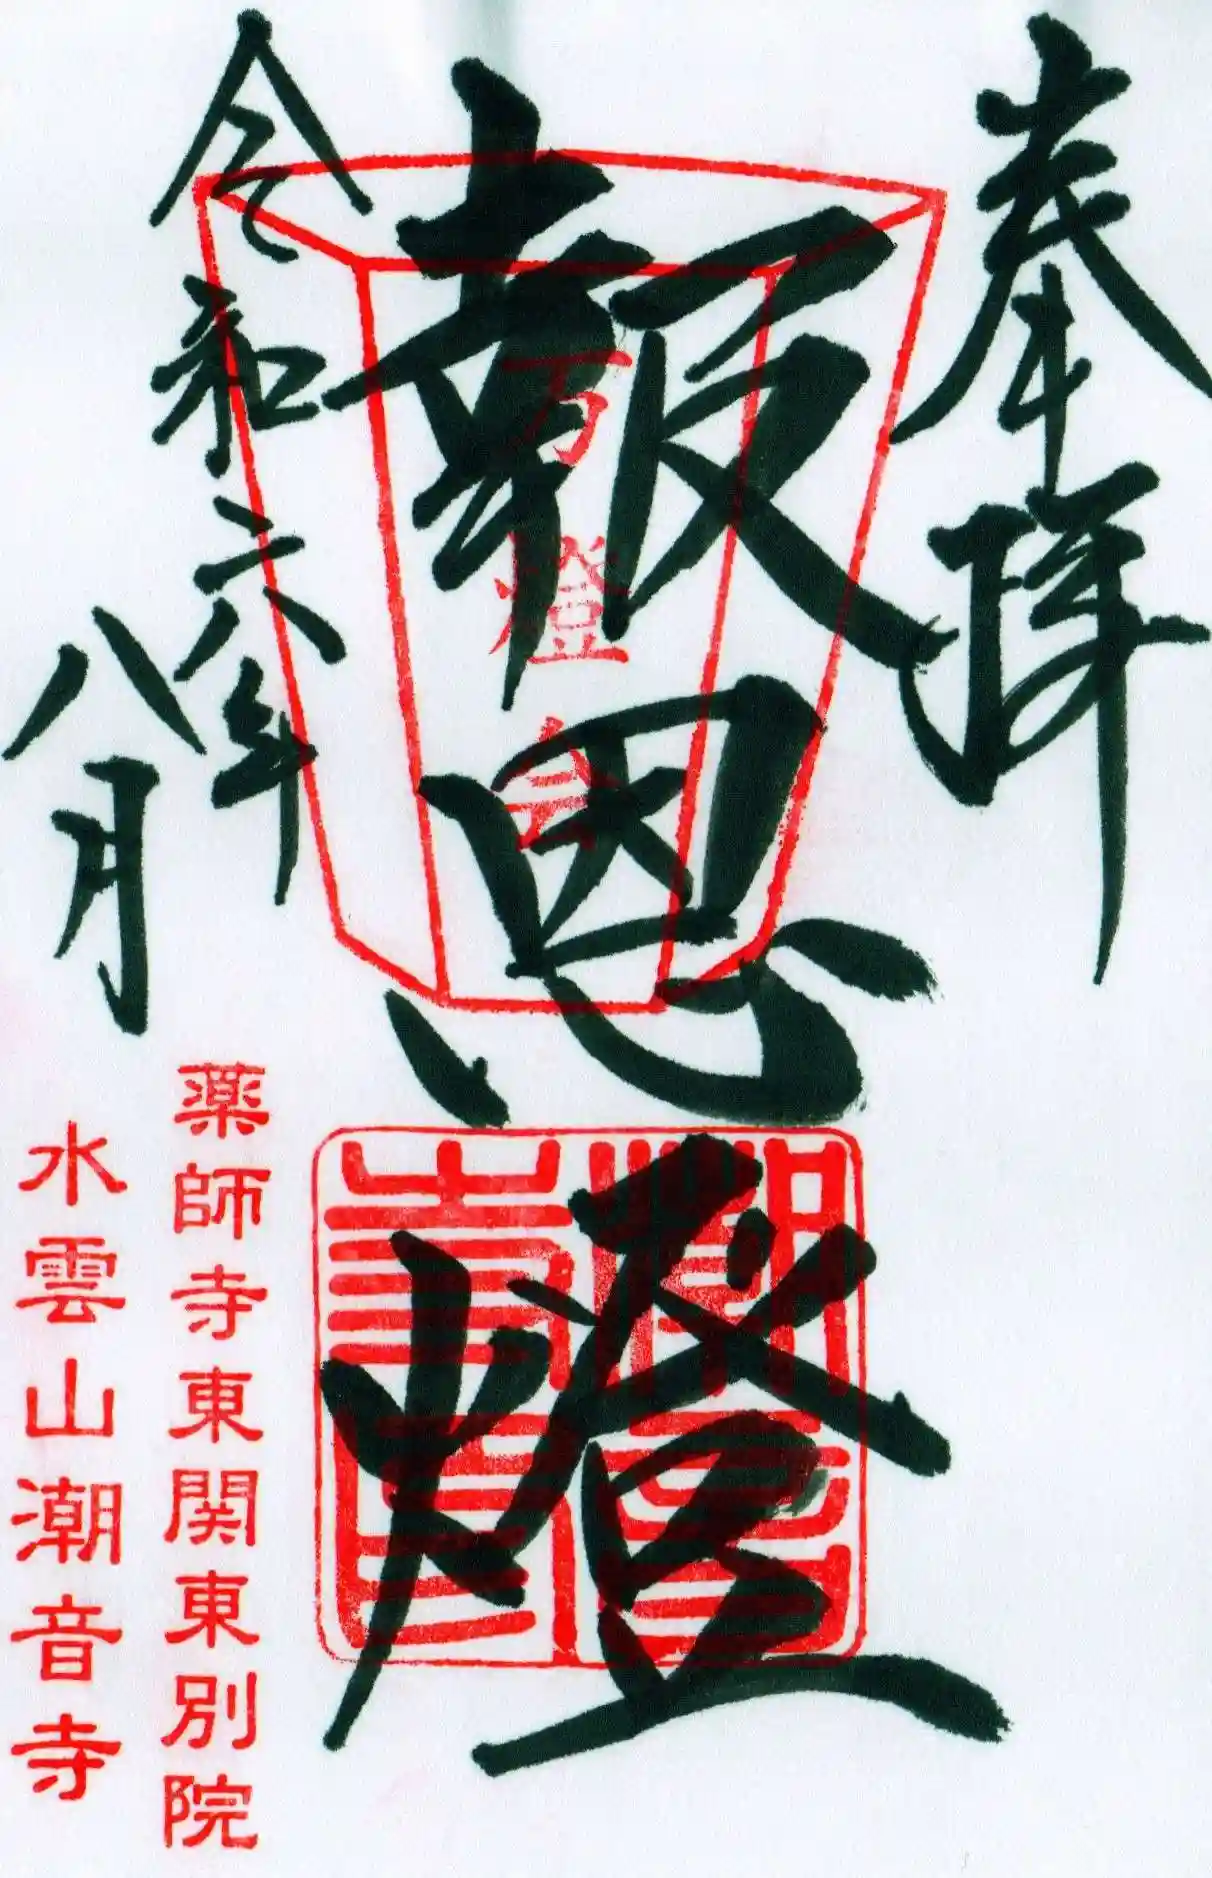 奉拝
報恩
燈
万燈会
令和六年
八月
薬師寺東関東別院
水雲山潮音寺